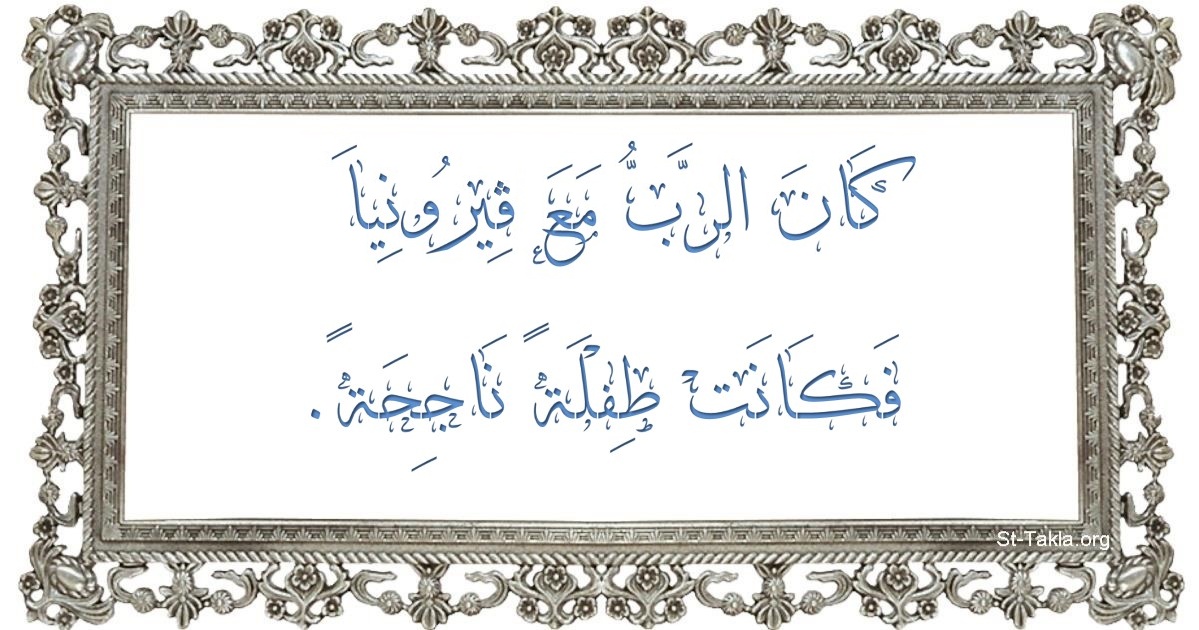 كَانَ الرَّبُّ مَعَ ڤِيرُونِيَا
فَكَانَتْ طِفْلَةً نَاجِحَةً.
St-Takla.org